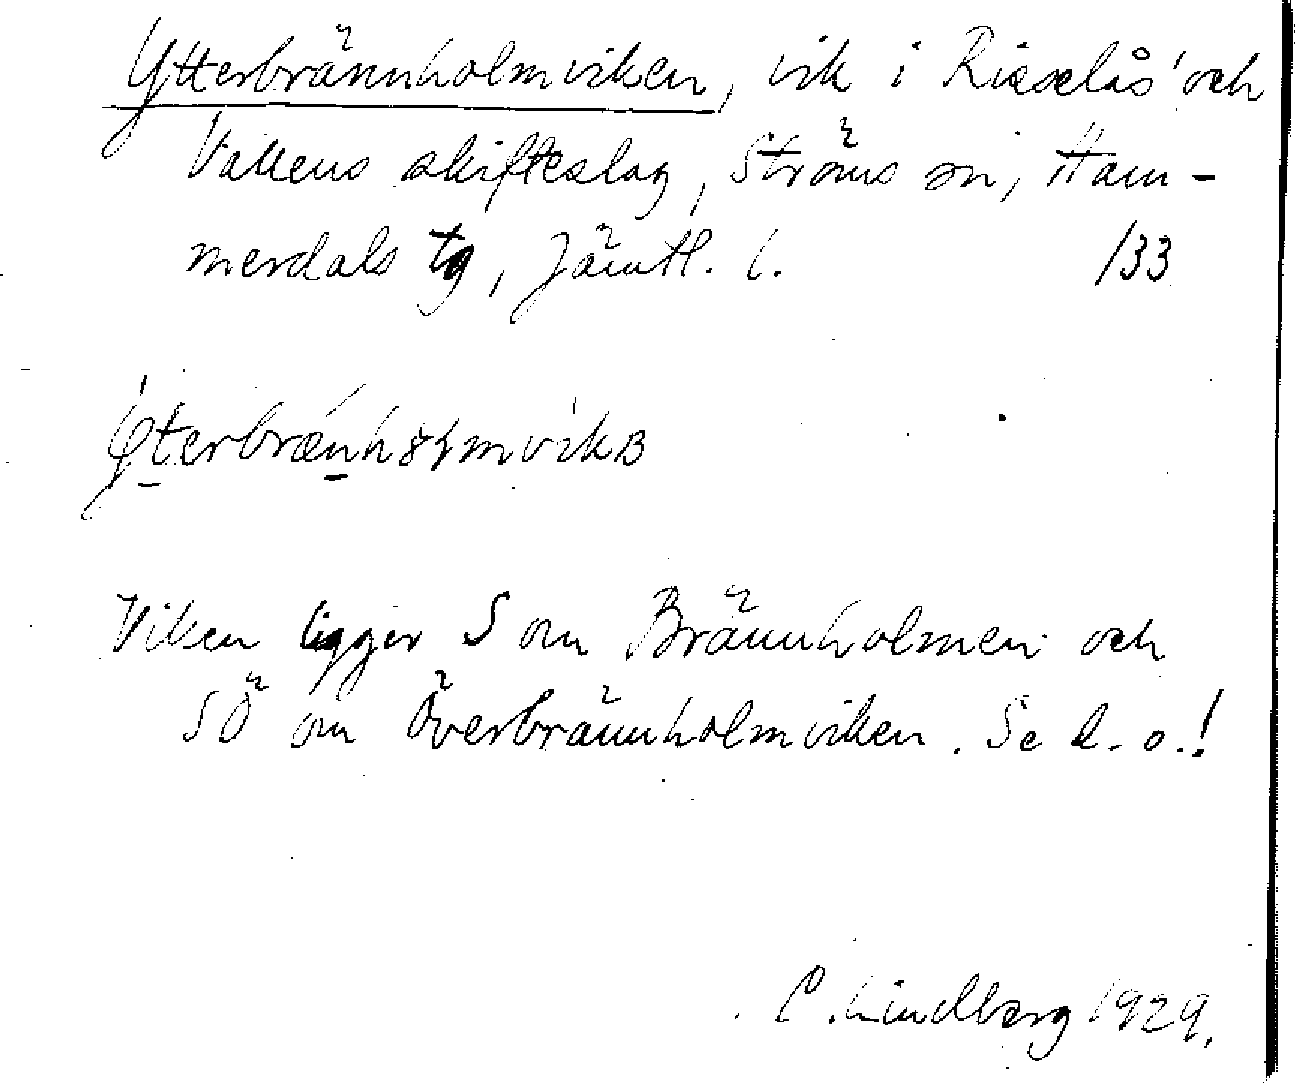 Ytterbrännholmviken, vik i Risselås' och
Vikens skifteslag, Ströms sn, Ham-
merdals tg, Jämtl. l. /33
Viken ligger S om Brännholmen och
SÖ om Överbrännholmviken. Se d. o.!
C. Lindberg 1929.